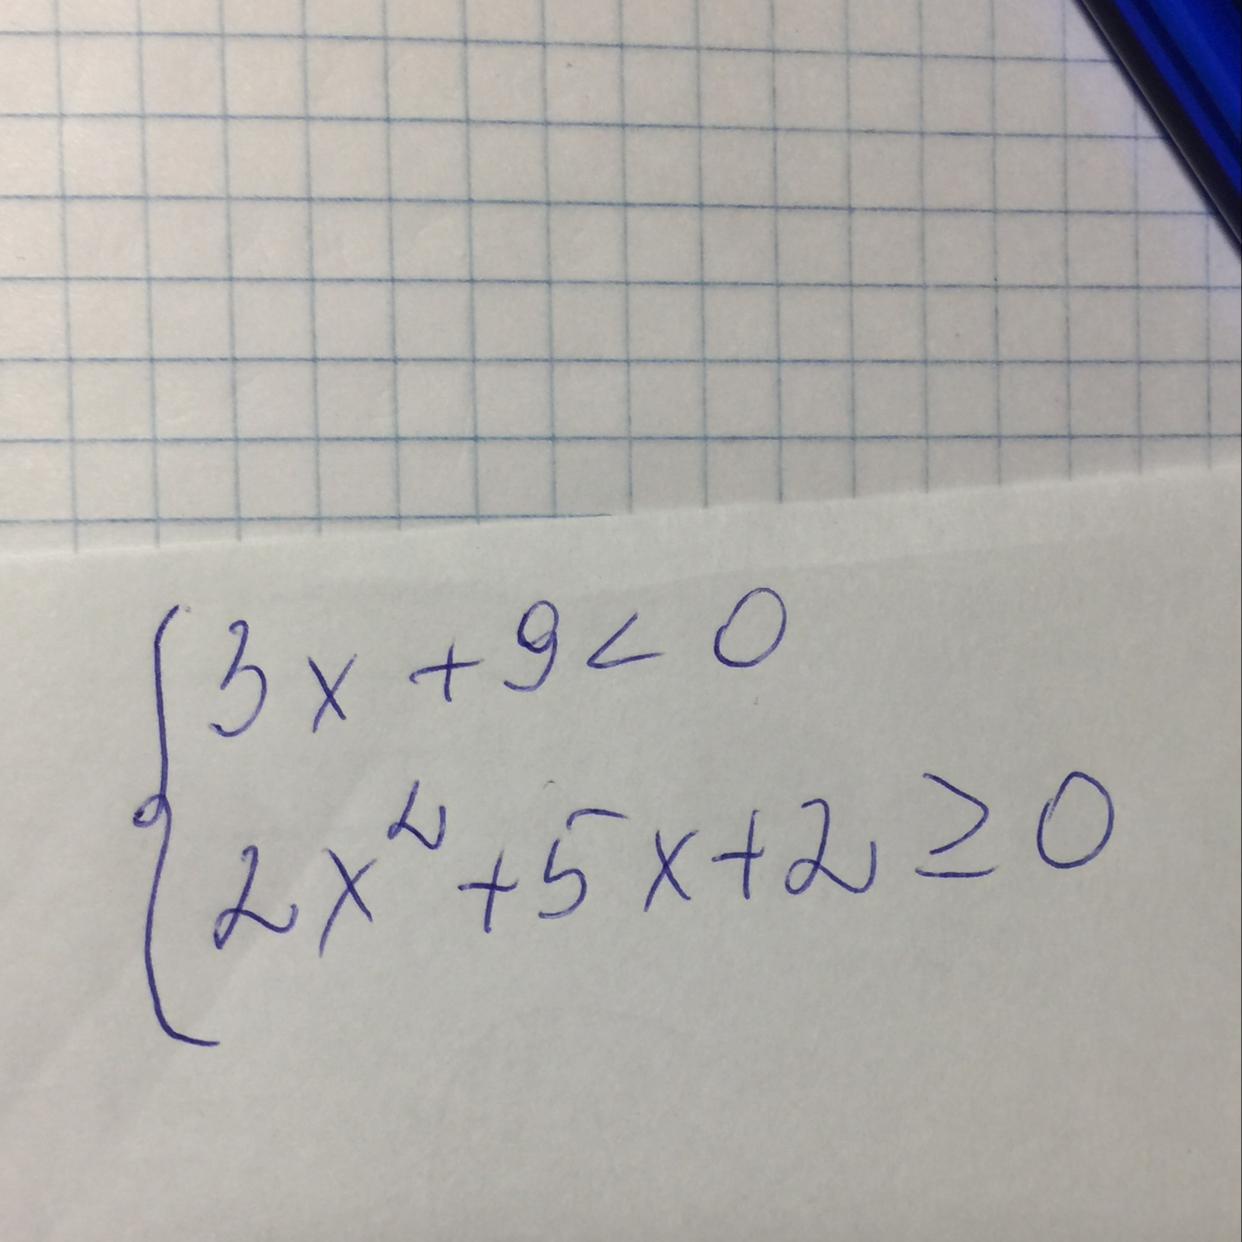 3x + 9 < 0
2x² + 5x + 2 ≥ 0